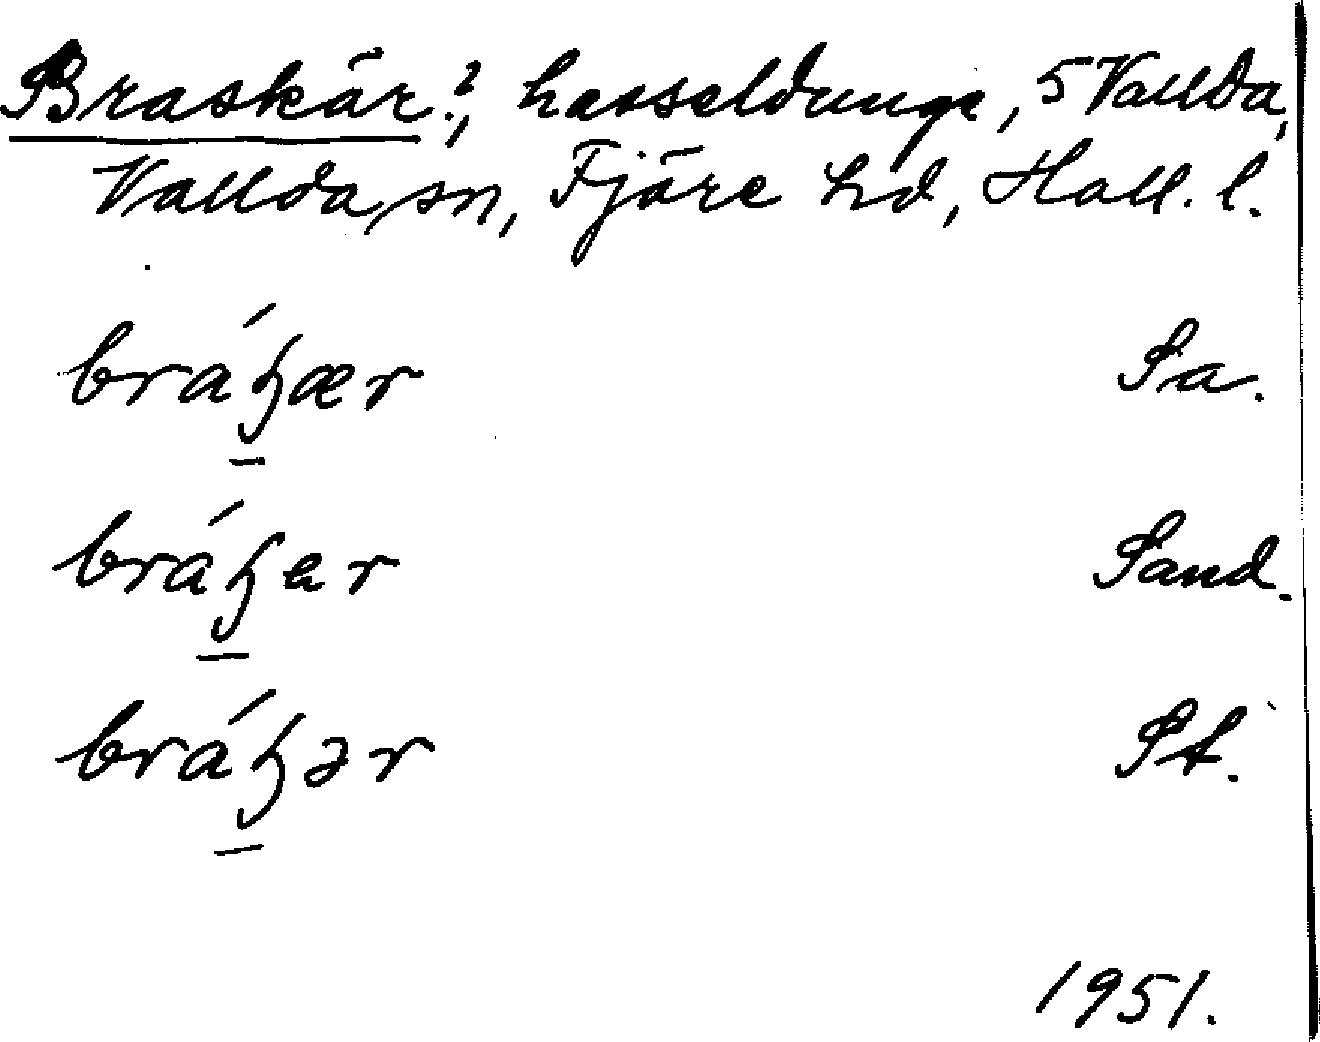 Braskär?, hasseldunge, 5 Vallda,
Vallda sn, Fjäre hd, Hall. l.
bráꜧær Sa.
bráꜧer Sand.
bráꜧər St.
1951.